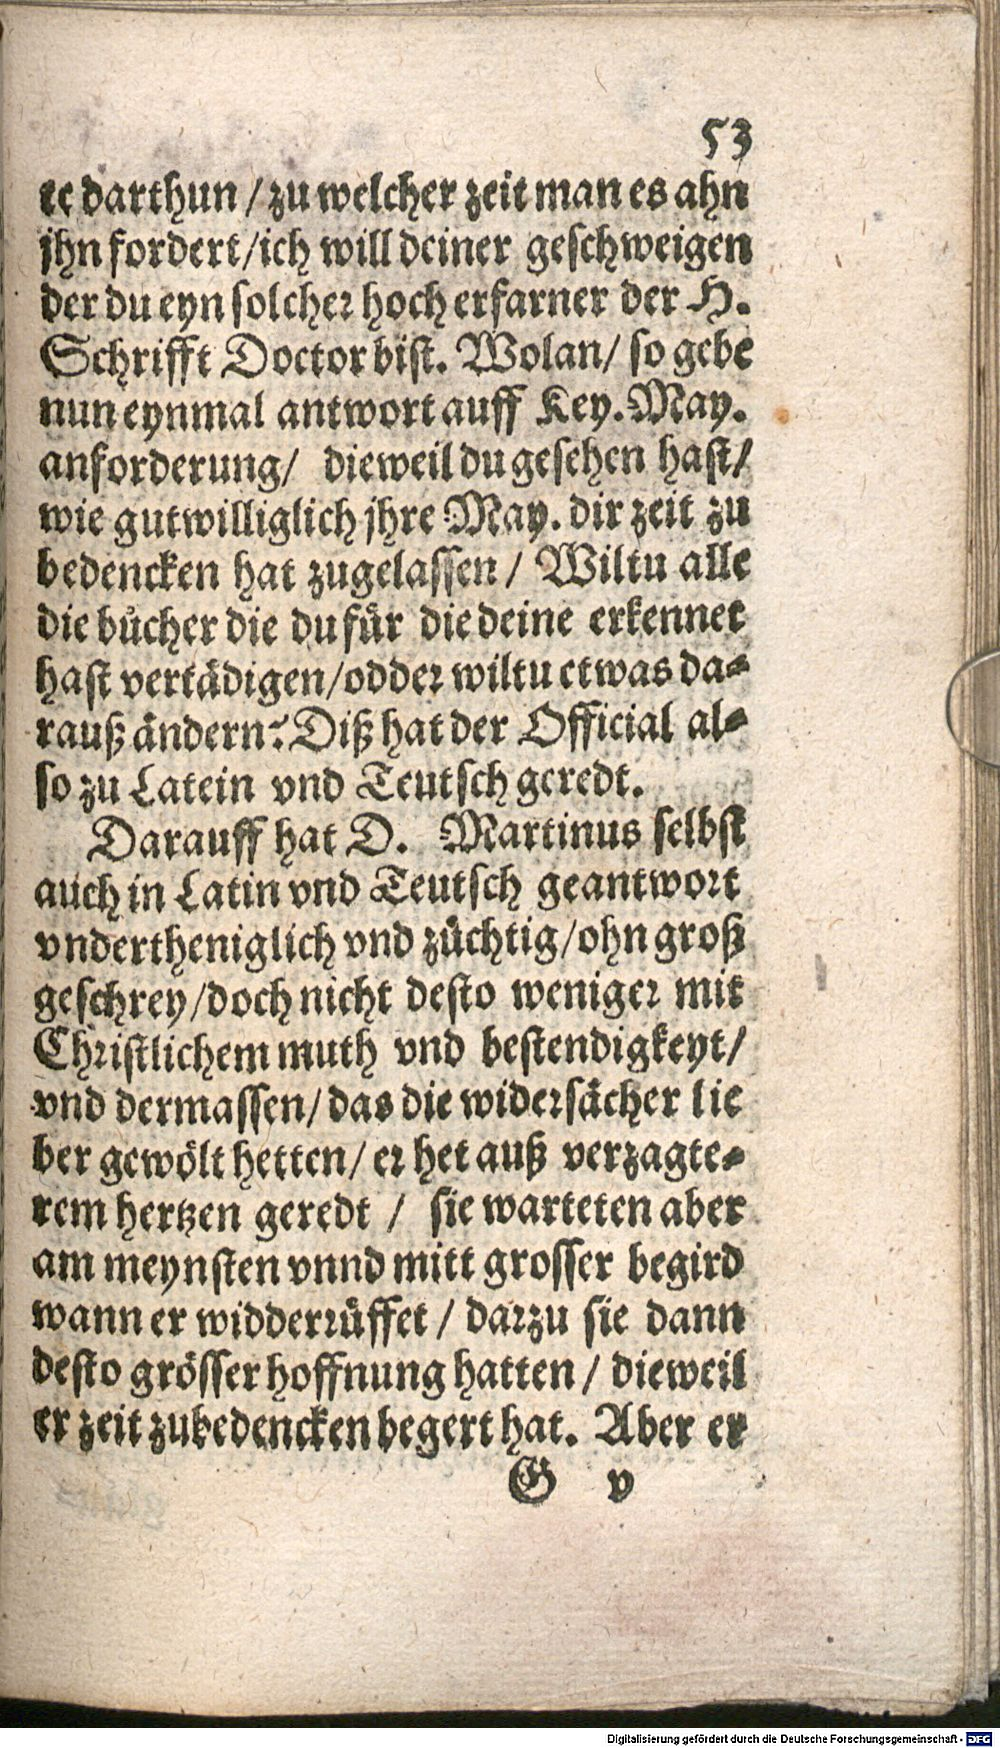 53
te darthun / zu welcher zeit man es ahn
jhn fordert/ich will deiner geschweigen
der du eyn solcher hoch erfarner der H.
Schrifft Doctor bist. Wolan/ so gebe
nun eynmal antwort auff Key. May.
anforderung/ dieweil du gesehen hast/
wie gutwilliglich jhre May. dir zeit zu
bedencken hat zugelassen / Wiltu alle
die bücher die du für die deine erkennet
hast vertädigen/odder wiltu etwas da-
rauß ändern? Diß hat der Official al-
so zu Latein vnd Teutsch geredt.
Darauff hat D. Martinus selbst
auch in Latin vnd Teutsch geantwort
vndertheniglich vnd züchtig/ohn groß
geschrey/doch nicht desto weniger mit
Christlichem muth vnd bestendigkeyt/
vnd dermassen/das die widersächer lie
ber gewölt hetten/ er het auß verzagte-
rem hertzen geredt / sie warteten aber
am meynsten vnnd mitt grosser begird
wann er widderrüffet / darzu sie dann
desto grösser hoffnung hatten / dieweil
er zeit zubedencken begert hat. Aber er
G v
Digitalisierung gefördert durch die Deutsche Forschungsgemeinschaft - DFG